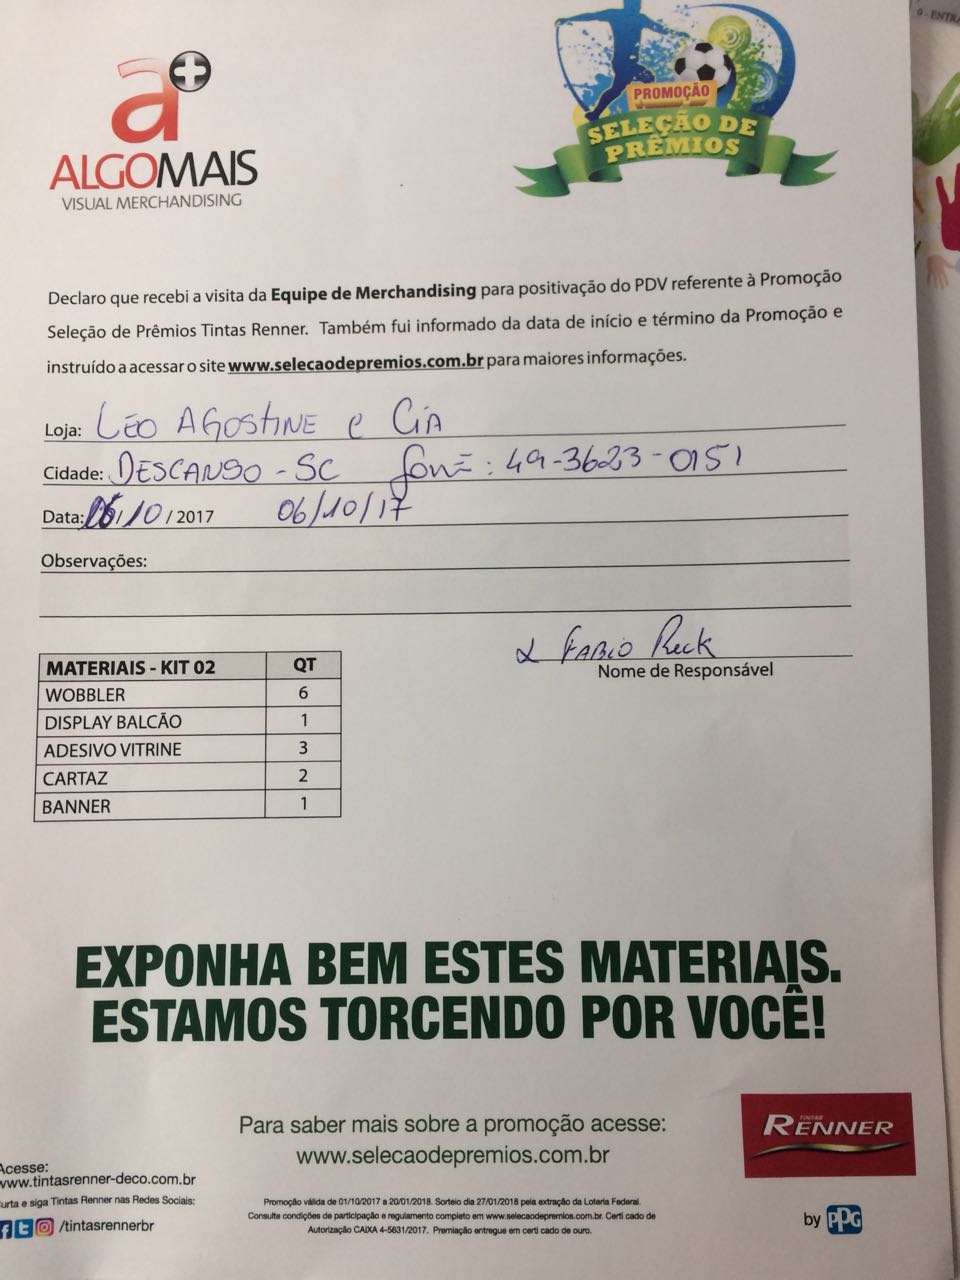 0 - ENTRA
a+
ALGOMAIS
VISUAL MERCHANDISING
PROMOÇÃO
SELEÇÃO DE
PRÊMIOS
Declaro que recebi a visita da Equipe de Merchandising para positivação do PDV referente à Promoção
Seleção de Prêmios Tintas Renner. Também fui informado da data de início e término da Promoção e
instruído a acessar o site www.selecaodepremios.com.br para maiores informações.
Loja: LEO AGOSTINE e CIA
Cidade: DESCANSO - SC fone: 49-3623-0151
Data: 06/10 / 2017 06/10/17
Observações:
FABIO Reck
Nome de Responsável
MATERIAIS - KIT 02 QT
WOBBLER 6
DISPLAY BALCÃO 1
ADESIVO VITRINE 3
CARTAZ 2
BANNER 1
EXPONHA BEM ESTES MATERIAIS.
ESTAMOS TORCENDO POR VOCÊ!
Para saber mais sobre a promoção acesse:
www.selecaodepremios.com.br
TINTAS
RENNER
Acesse:
www.tintasrenner-deco.com.br
urta e siga Tintas Renner nas Redes Sociais:
/tintasrennerbr
Promoção válida de 01/10/2017 a 20/01/2018. Sorteio dia 27/01/2018 pela extração da Loteria Federal.
Consulte condições de participação e regulamento completo em www.selecaodepremios.com.br. Certi cado de
Autorização CAIXA 4-5631/2017. Premiação entregue em certi cado de ouro.
by PPG